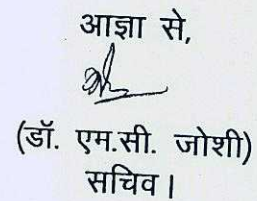 आज्ञा से,
(डॉ. एम.सी. जोशी)
सचिव।